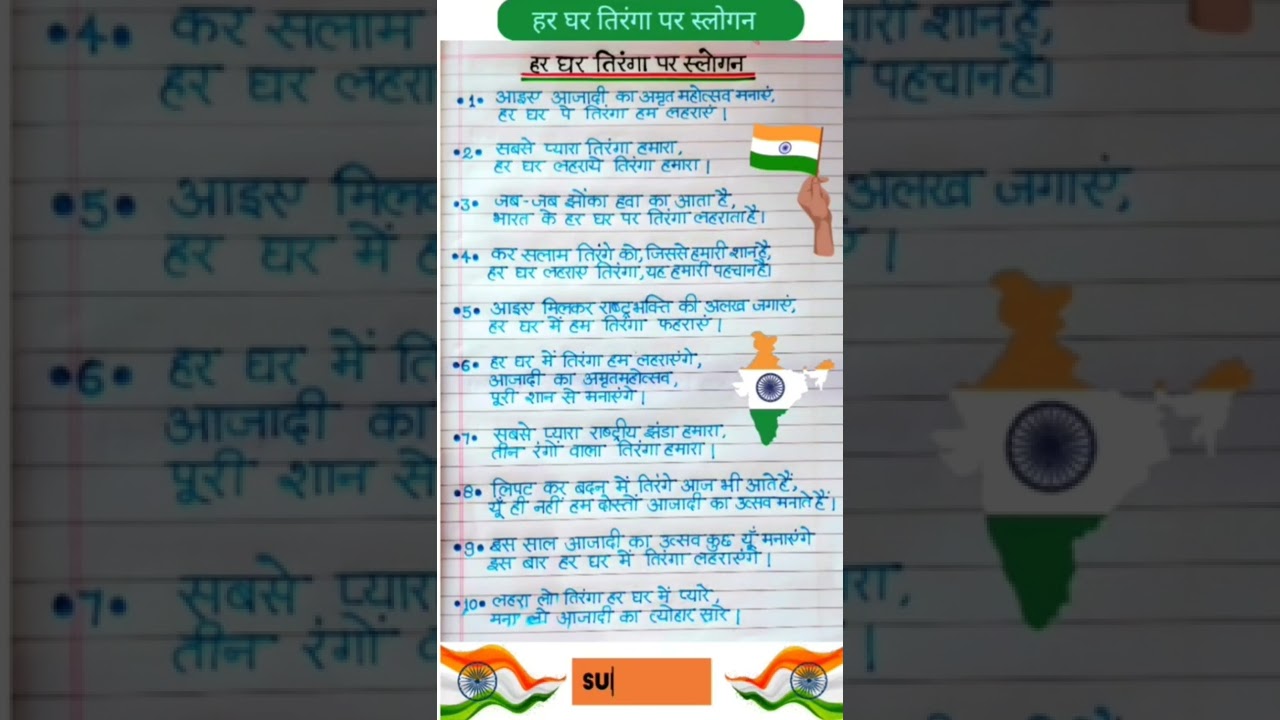 हर घर तिरंगा पर स्लोगन
हर घर तिरंगा पर स्लोगन
•1• आइए आजादी का अमृत महोत्सव मनाएं,
हर घर पे तिरंगा हम लहराएं।
•2• सबसे प्यारा तिरंगा हमारा,
हर घर लहराये तिरंगा हमारा।
•3• जब-जब झोंका हवा का आता है,
भारत के हर घर पर तिरंगा लहराता है।
•4• कर सलाम तिरंगे को, जिससे हमारी शान है,
हर घर लहराए तिरंगा, यह हमारी पहचान है।
•5• आइए मिलकर राष्ट्रभक्ति की अलख जगाएं,
हर घर में हम तिरंगा फहराएं।
•6• हर घर में तिरंगा हम लहराएंगे,
आजादी का अमृतमहोत्सव,
पूरी शान से मनाएंगे।
•7• सबसे प्यारा राष्ट्रीय झंडा हमारा,
तीन रंगों वाला तिरंगा हमारा।
•8• लिपट कर बदन में तिरंगे आज भी आते हैं,
यूँ ही नहीं हम दोस्तों आजादी का उत्सव मनाते हैं।
•9• इस साल आजादी का उत्सव कुछ यूँ मनाएंगे
इस बार हर घर में तिरंगा लहराएंगे।
•10• लहरा लो तिरंगा हर घर में प्यारे,
मना लो आजादी का त्योहार सारे।
SU